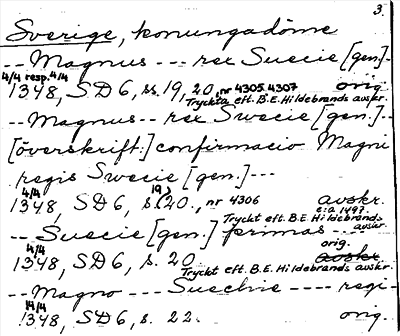 3.
Sverige, konungadöme
-- Magnus --- rex Suecie [gen.]
4/4 resp. 4/4
1348, SD 6, s. 19, 20, nr 4305, 4307 orig.
Tryckta eft. B.E. Hildebrands avskr.
-- Magnus -- rex Swecie [gen.] --
[överskrift:] confirmacio Magni
regis Swecie [gen.] ---
4/4 19,
1348, SD 6, s. 20, nr 4306 avskr.
c:a 1497.
Tryckt eft. B.E. Hildebrands avskr.
-- Suecie [gen.] primas ---
4/4 orig.
1348, SD 6, s. 20 avskr.
Tryckt eft. B.E. Hildebrands avskr.
-- Magno --- Suechie ---- regi -
14/4
1348, SD 6, s. 22. orig.